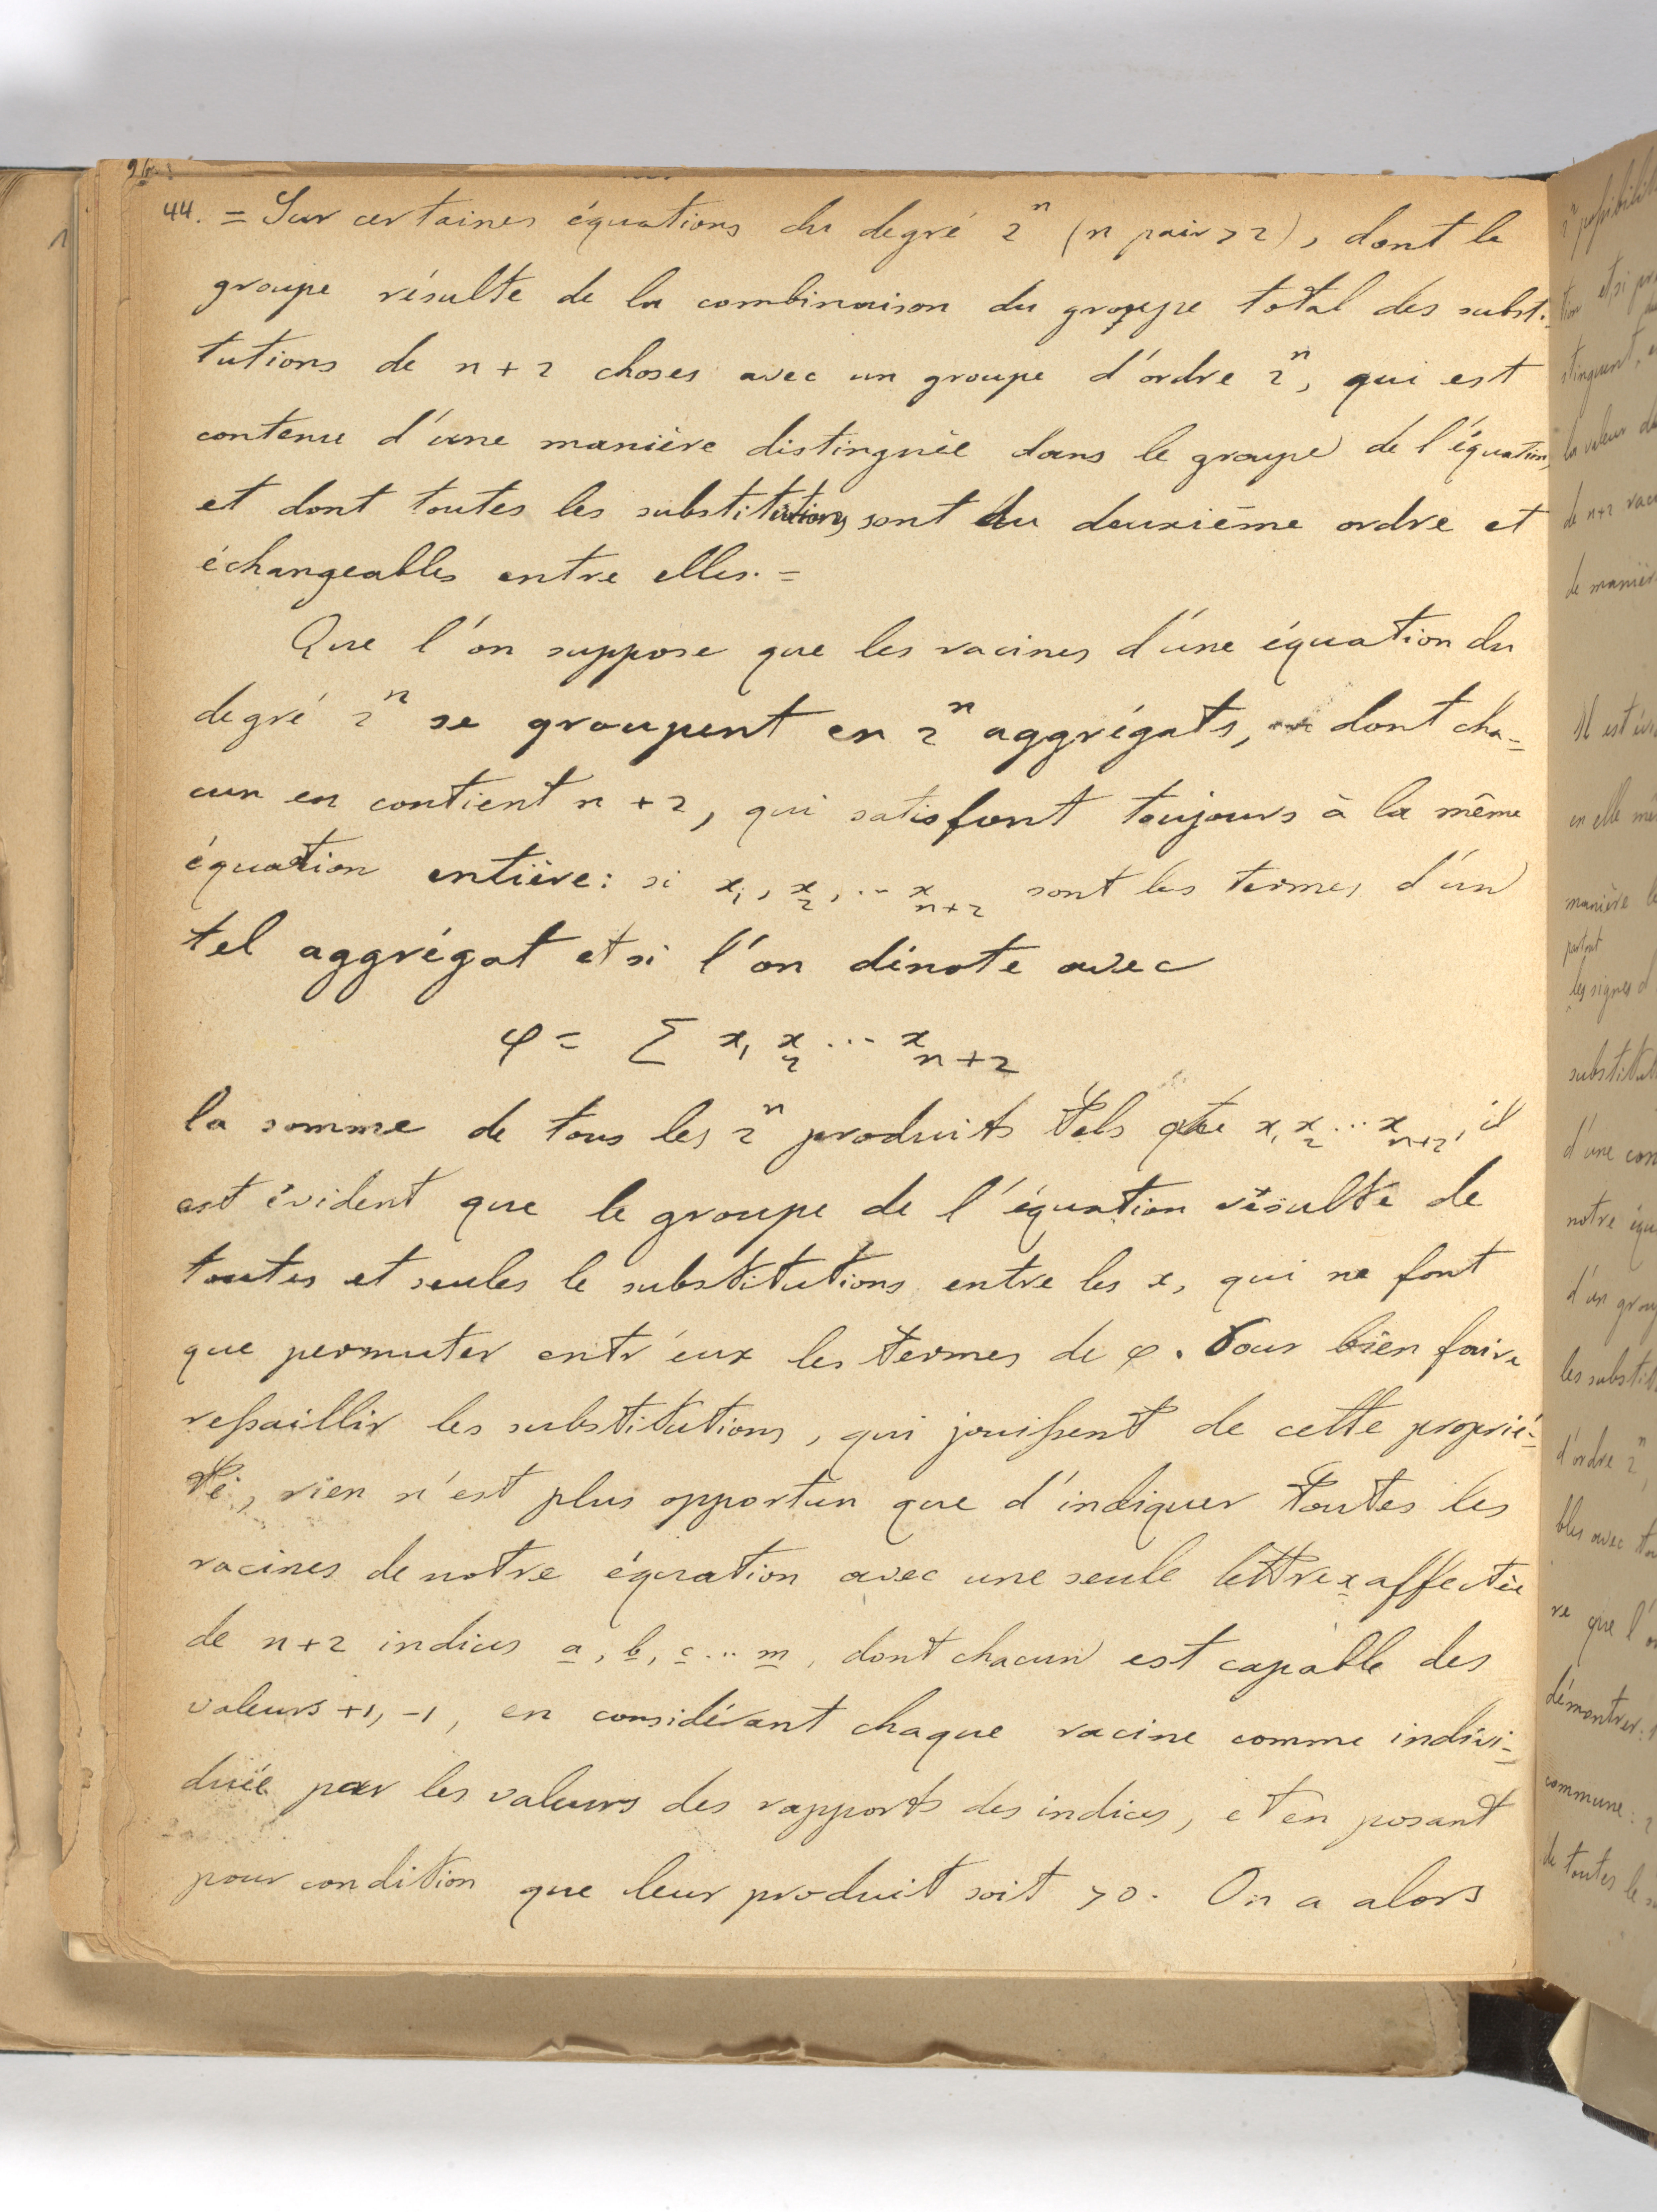 44. = Sur certaines équations du degré 2^n (n pair > 2), dont le
groupe résulte de la combinaison du groupe total des substi-
tutions de n+2 choses avec un groupe d'ordre 2^n, qui est
contenu d'une manière distinguée dans le groupe de l'équation,
et dont toutes les substitutions sont du deuxième ordre et
échangeables entre elles. =
Que l'on suppose que les racines d'une équation du
degré 2^n se groupent en 2^n aggrégats, dont cha-
cun en contient n+2, qui satisfont toujours à la même
équation entière: si x_1, x_2, ... x_{n+2} sont les termes d'un
tel aggrégat et si l'on dénote avec
φ = Σ x_1 x_2 ... x_{n+2}
la somme de tous les 2^n produits tels que x_1 x_2 ... x_{n+2}, il
est évident que le groupe de l'équation résulte de
toutes et seules le substitutions entre les x, qui ne font
que permuter entr'eux les termes de φ. Pour bien faire
ressaillir les substitutions, qui jouissent de cette proprié-
té, rien n'est plus opportun que d'indiquer toutes les
racines de notre équation avec une seule lettre x affectée
de n+2 indices a, b, c ... m, dont chacun est capable des
valeurs +1, -1, en considérant chaque racine comme indivi-
duée par les valeurs des rapports des indices, et en posant
pour condition que leur produit soit > 0. On a alors
2^n
tion et si
de n+2
de manière
Il est
en elle
manière
partout
les signes
d'une
notre
d'un
d'ordre 2^n,
bles avec
re que l'
démontrer:
commune: 2
de toutes le